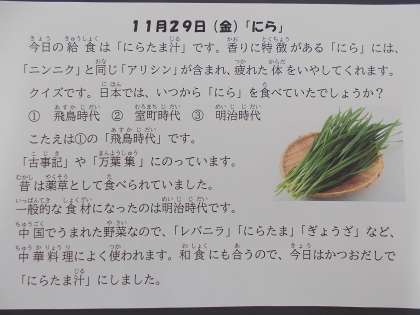 11月29日（金）「にら」
今日の給食は「にらたま汁」です。香りに特徴がある「にら」には、
「ニンニク」と同じ「アリシン」が含まれ、疲れた体をいやしてくれます。
クイズです。日本では、いつから「にら」を食べていたでしょうか？
① 飛鳥時代 ② 室町時代 ③ 明治時代
こたえは①の「飛鳥時代」です。
「古事記」や「万葉集」にのっています。
昔は薬草として食べられていました。
一般的な食材になったのは明治時代です。
中国でうまれた野菜なので、「レバニラ」「にらたま」「ぎょうざ」など、
中華料理によく使われます。和食にも合うので、今日はかつおだしで
「にらたま汁」にしました。